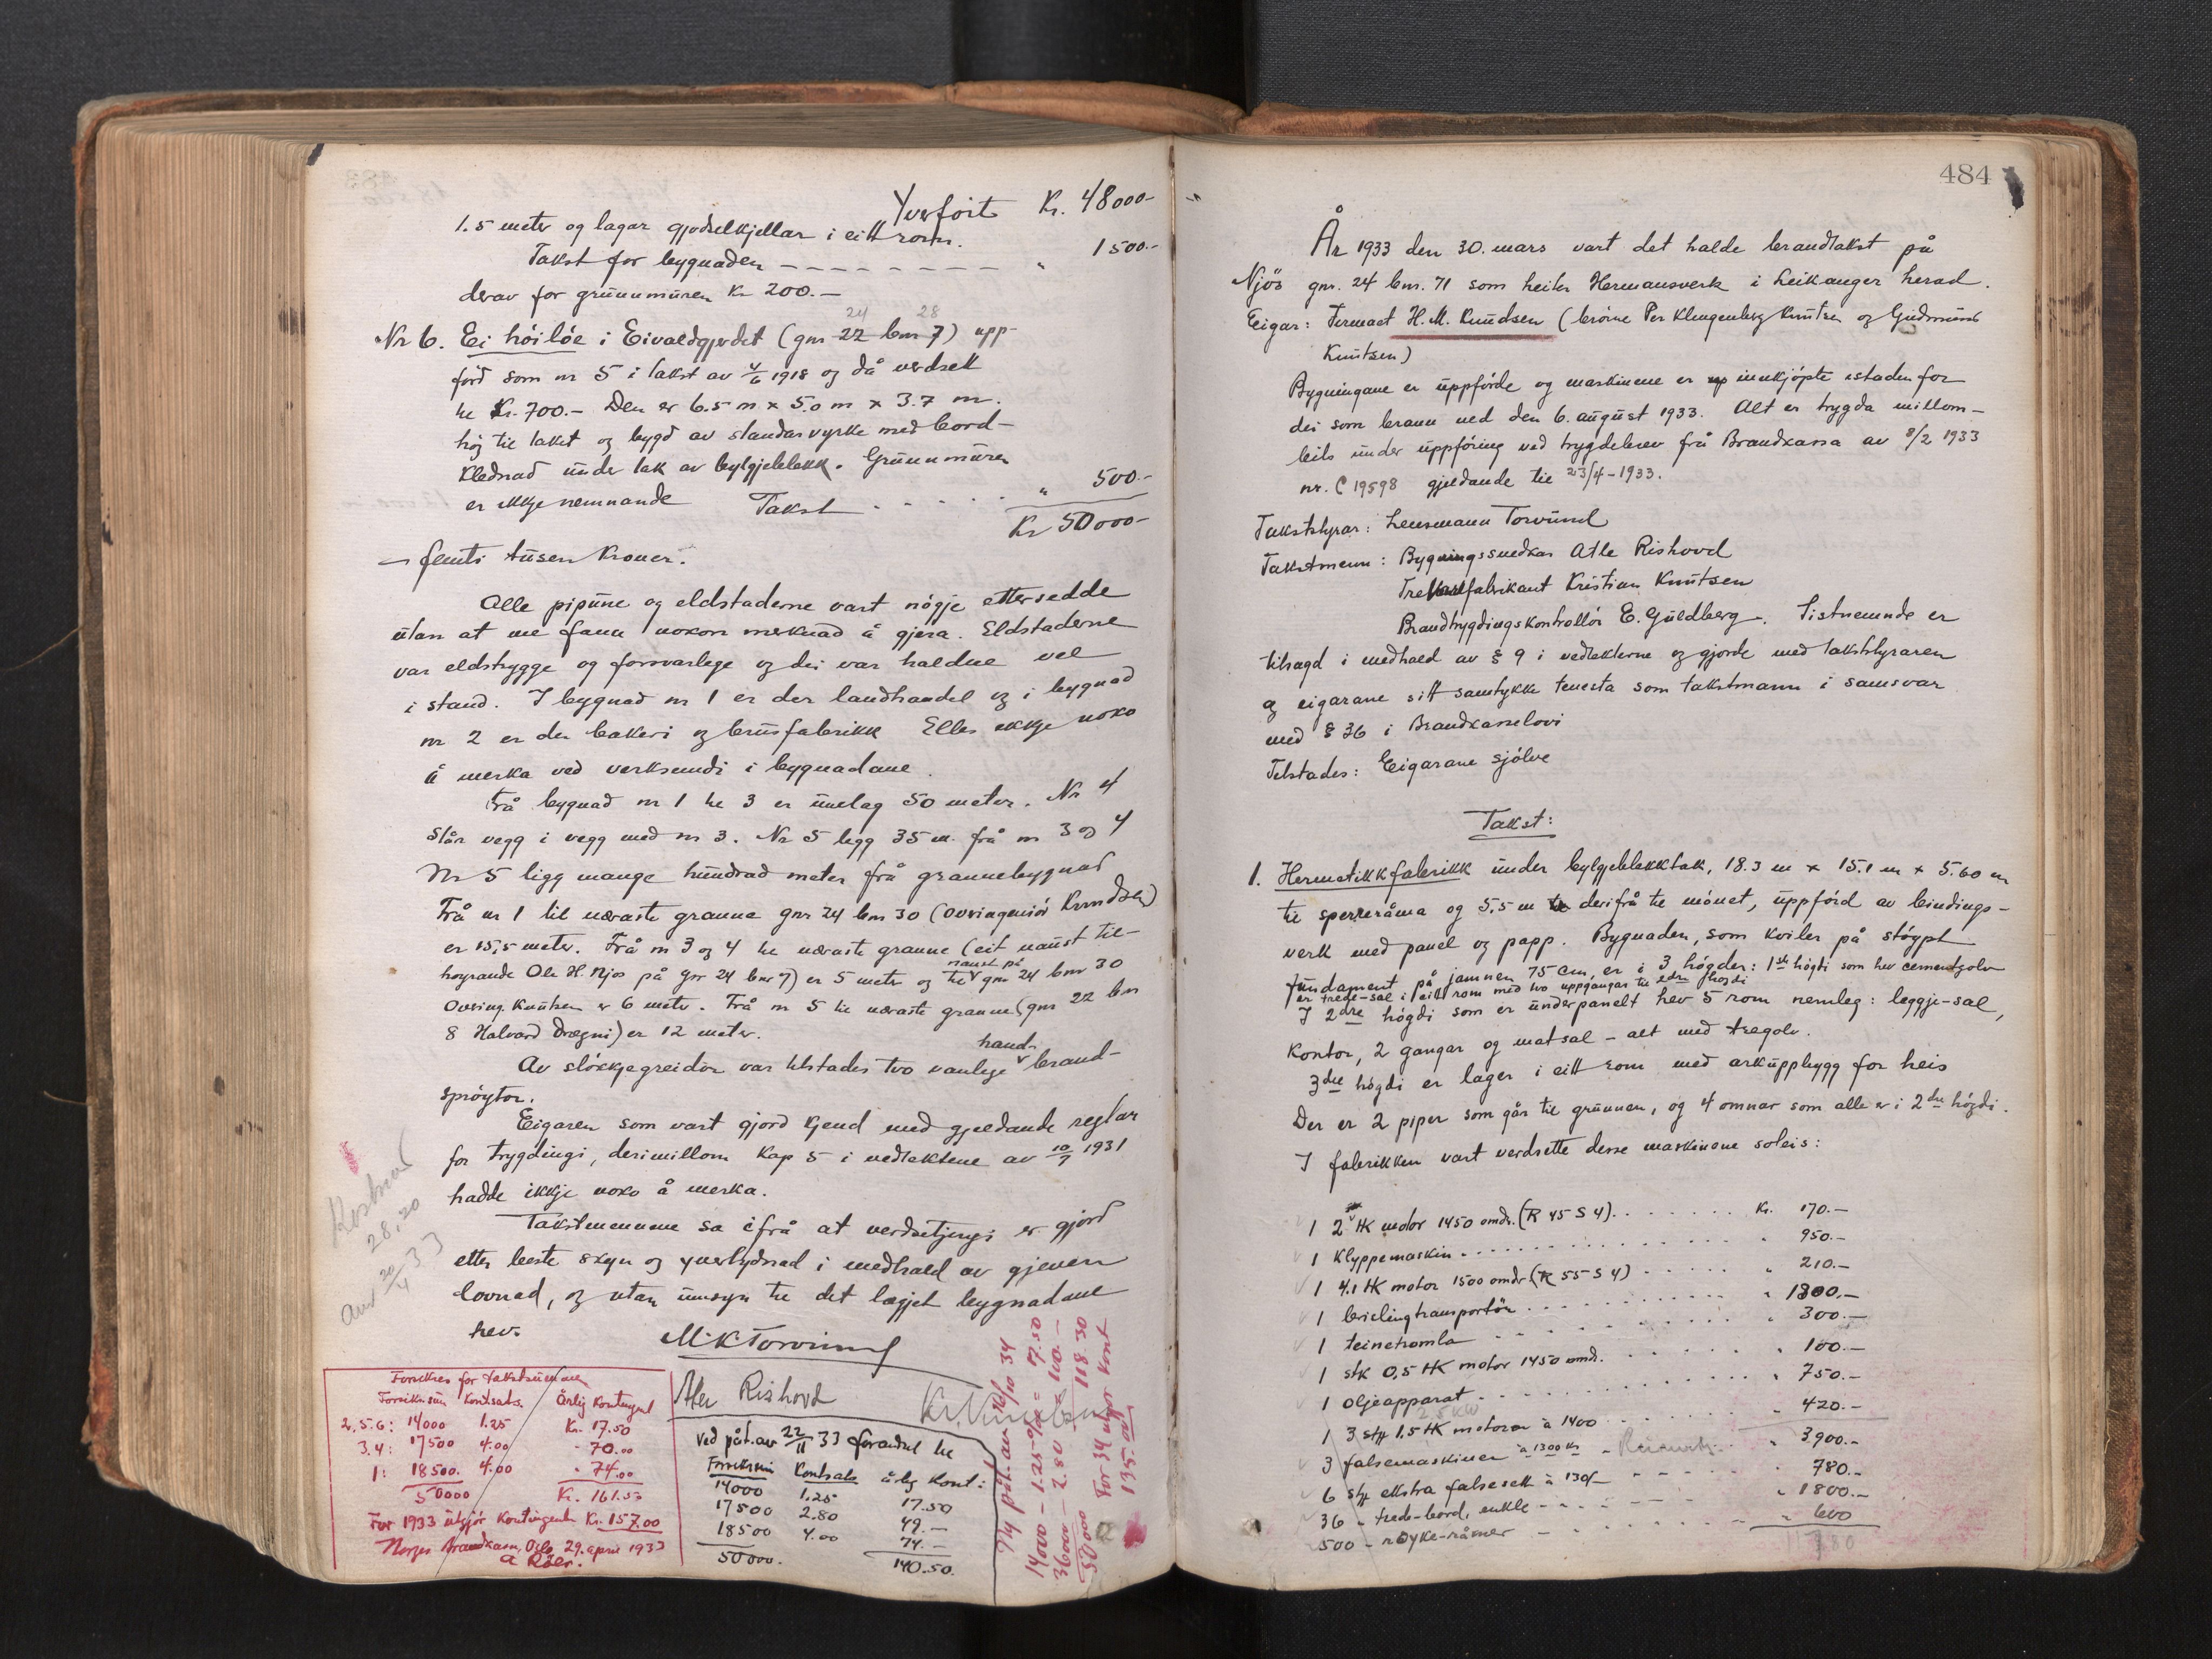 Yverfört Kr. 48000.-
1.5 meter og lagar gjødselkjellar i eitt rom.
Takst for bygnaden - - - - - - - - " 1500.-
derav for grunnmuren Kr 200.-
24 28
Nr 6. Ei höilöe i Eivaldgjerdet (gnr 22 bnr 7) upp-
förd som nr 5 i takst av 4/6 1918 og då verdsett
te Kr. 700.- Den er 6.5 m x 5.0 m x 3.7 m.
høg til taket og bygd av standarvyrke med bord-
klednad under tak av bylgjeblekk. Grunnmuren
er ikkje nemnande Takst . . . . . " 500.-
Kr 50000.-
- femti tusen kroner.
Alle pipune og eldstaderne vart nögje ettersedde
utan at me fann nokon merknad å gjera. Eldstaderne
var eldstrygge og forsvarlege og dei var haldne vel
i stand. I bygnad nr 1 er der landhandel og i bygnad
nr 2 er der bakeri og brusfabrikk Elles ikkje noko
å merka ved verksemdi i bygnadane.
Frå bygnad nr 1 te 3 er umlag 50 meter. Nr 4
står vegg i vegg med nr 3. Nr 5 ligg 35 m. frå nr 3 og 4
Nr 5 ligg mange hundrad meter frå grannebygnad
Frå nr 1 til næraste granne gnr 24 bnr 30 (overingeniör Knudsen)
er 15,5 meter. Frå nr 3 og 4 te næraste granne (eit naust til-
høyrande Ole H. Njøs på gnr 24 bnr 7) er 5 meter og til naust på gnr 24 bnr 30
Overing. Knutsen er 6 meter. Frå nr 5 te næraste granne (gnr 22 bnr
8 Halvard Drægni) er 12 meter.
Av slökkjegreidor var tilstades two vanlege hand-brand-
spröytor.
Eigaren som vart gjord kjend med gjeldande reglar
for trygdingi, derimillom kap 5 i vedtektene av 10/7 1931
hadde ikkje noko å merka.
Takstmennene sa ifrå at verdsetjingi er gjord
etter beste skyn og yvertydnad i medhald av gjeven
lovnad, og utan umsyn te det lagjet bygnadane
hev.
M.K. Torvund
Atle Rishovd
Kostnad
28,20
20/4 33
Forsikres for takstsummen
Forsikr.sum Kont.sats. Årlig Kontingent
2,5.6: 14000 1.25 Kr. 17.50
3.4: 17500 4.00 - 70.00
1: 18500. 4.00 - 74.00
50000 Kr. 161.50
For 1933 utgjör Kontingenten Kr. 157.00
Norges Brandkasse, Oslo 29. april 1933
Ved påt. av 22/11 33 forandret te
Forsikr.sum Kontsats årlig Kont:
14000 1.25 17.50
17500 2.80 49.-
18500 4.00 74.-
50000. 140.50.
Ny påt. av 16/10 34
14000 - 1.25 ‰ = 17.50
36000 - 2.80 " 100.-
50000 118.30
For 34 utgör Kont
135.
484
År 1933 den 30. mars vart det halde brandtakst på
Njös gnr. 24 bnr. 71 som heiter Hermansverk i Leikanger herad.
Eigar: Firmaet H.M. Knudsen (brörne Per Klingenberg Knutsen og Gudmund
Knutsen)
Bygningane er uppförde og maskinene er innkjöpte istaden for
dei som brann ned den 6. august 1933. Alt er trygda millom-
bils under uppföring ved trygdebrev frå Brandkassa av 8/2 1933
nr. C 19598 gjeldande til 23/4-1933.
Takststyrar: Lensmann Torvund
Takstmenn: Bygningssnedkar Atle Rishovd
Trevarefabrikant Kristian Knutsen
Brandtrygdingskontrollör E. Guldberg. Sistnemnde er
tilsagd i medhald av § 9 i vedtekterne og gjorde med takststyraren
og eigarane sitt samtykke tenesta som takstmann i samsvar
med § 36 i Brandkasselovi
Tilstades: Eigarane sjölve
Takst:
1. Hermetikkfabrikk under bylgjeblekktak, 18.3 m x 15.1 m x 5.60 m
te sperreråma og 5,5 m derifrå te mönet, uppförd av bindings-
verk med panel og papp. Bygnaden, som kviler på stöypt
fundament på jamnen 75 cm, er i 3 högder: 1ste högdi som hev cementgolv
er trede-sal i eitt rom med two uppgangar te 2dre högdi
I 2dre högdi som er underpanelt hev 5 rom nemleg: leggje-sal,
Kontor, 2 gangar og matsal - alt med tregolv.
3die högdi er lager i eitt rom med arkuppbygg for heis
Der er 2 piper som går til grunnen, og 4 omnar som alle er i 2dre högdi.
I fabrikken vart verdsette desse maskinene soleis:
1 2 HK motor 1450 omdr. (R 45 S 4) . . . . . . . Kr. 170.-
1 Klyppemaskin . . . . . . . . . . " 950.-
1 4.1 HK motor 1500 omdr (R 55 S 4) . . . . . " 210.-
1 brislingtransportör . . . . . . . . " 1300.-
1 teinetromla . . . . . . . . " 300.-
1 stk 0,5 HK motor 1450 omdr. . . . . . " 100.-
1 oljeapparat . . . . . . . . . " 750.-
2,5 KW
1 3 stk 1.5 HK motorar à 1400 . . . . . " 420.-
3 falsemaskiner à 1300 kr - " 3900.-
6 stk ekstra falsesett à 130/- - - - - " 780.-
36 - trede-bord, enkle - - - - - " 1800.-
500 - røyke-råmer - - - - - " 600